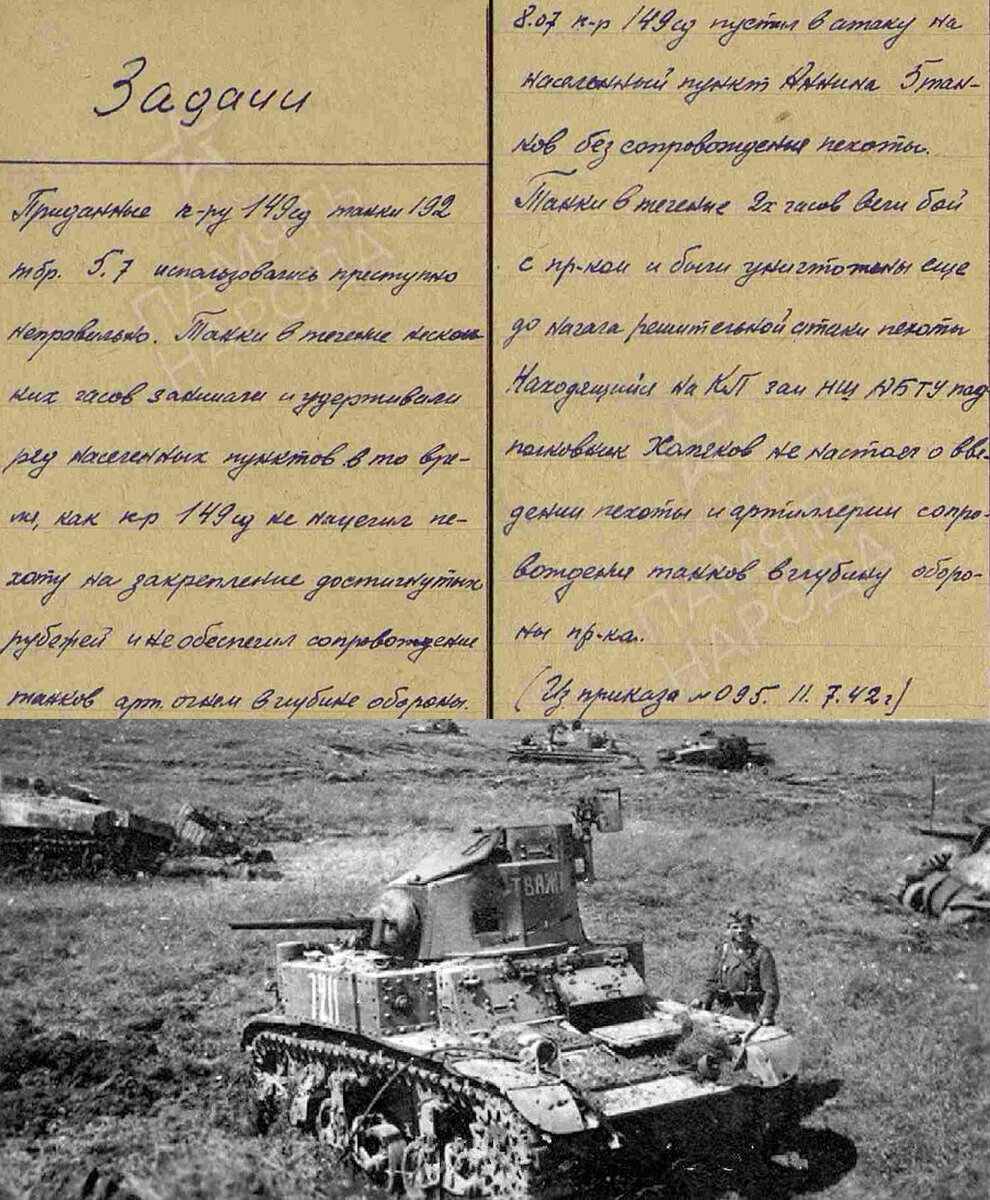 Задачи
Приданные к-ру 149сд танки 192
тбр. 5.7 использовались преступно
неправильно. Танки в течение несколь
ких часов занимали и удерживали
ряд населенных пунктов в то вре-
мя, как к-р 149сд не нацелил пе-
хоту на закрепление достигнутых
рубежей и не обеспечил сопровождение
танков арт. огнем в глубине обороны.
8.07 к-р 149сд пустил в атаку на
населенный пункт Аннина 5 тан-
ков без сопровождения пехоты.
Танки в течение 2х часов вели бой
с пр-ком и были уничтожены еще
до начала решительной атаки пехоты
Находящийся на КП зам НШ АБТУ под
полковник не настоял о вве-
дении пехоты и артиллерии сопро-
вождения танков в глубину оборо-
ны пр-ка.
(Из приказа №095. 11.7.42г)
ПАМЯТЬ
НАРОДА
ПАМЯТЬ
НАРОДА